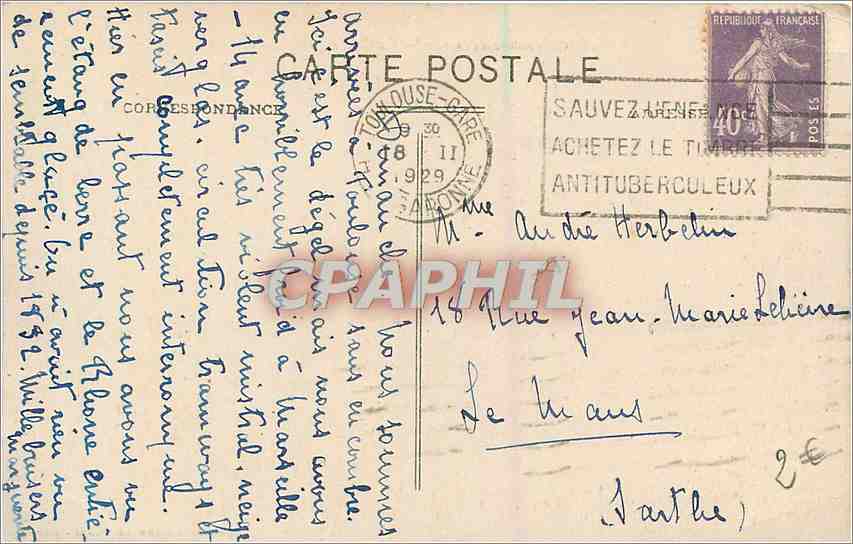 CARTE POSTALE
CORRESPONDANCE
ADRESSE
RÉPUBLIQUE FRANÇAISE
40c
POSTES
TOULOUSE-GARE
9 30
18 II
1929
GARONNE
SAUVEZ L'ENFANCE
ACHETEZ LE TIMBRE
ANTITUBERCULEUX
CPAPHIL
Dimanche. Nous sommes
arrivés à Toulouse sans encombre.
Ici c'est le dégel mais nous avons
eu horriblement froid à Marseille
- 14 avec très violent mistral, neige
verglas, circulation tramways
était complètement interrompue.
Hier en passant nous avons vu
l'étang de berre et le Rhône entiè-
rement glacé. On n'avait rien vu
de semblable depuis 1832. Mille baisers
Marguerite
Mme André Herbelin
18 Rue Jean-Marie Lelièvre
Le Mans
(Sarthe)
2€